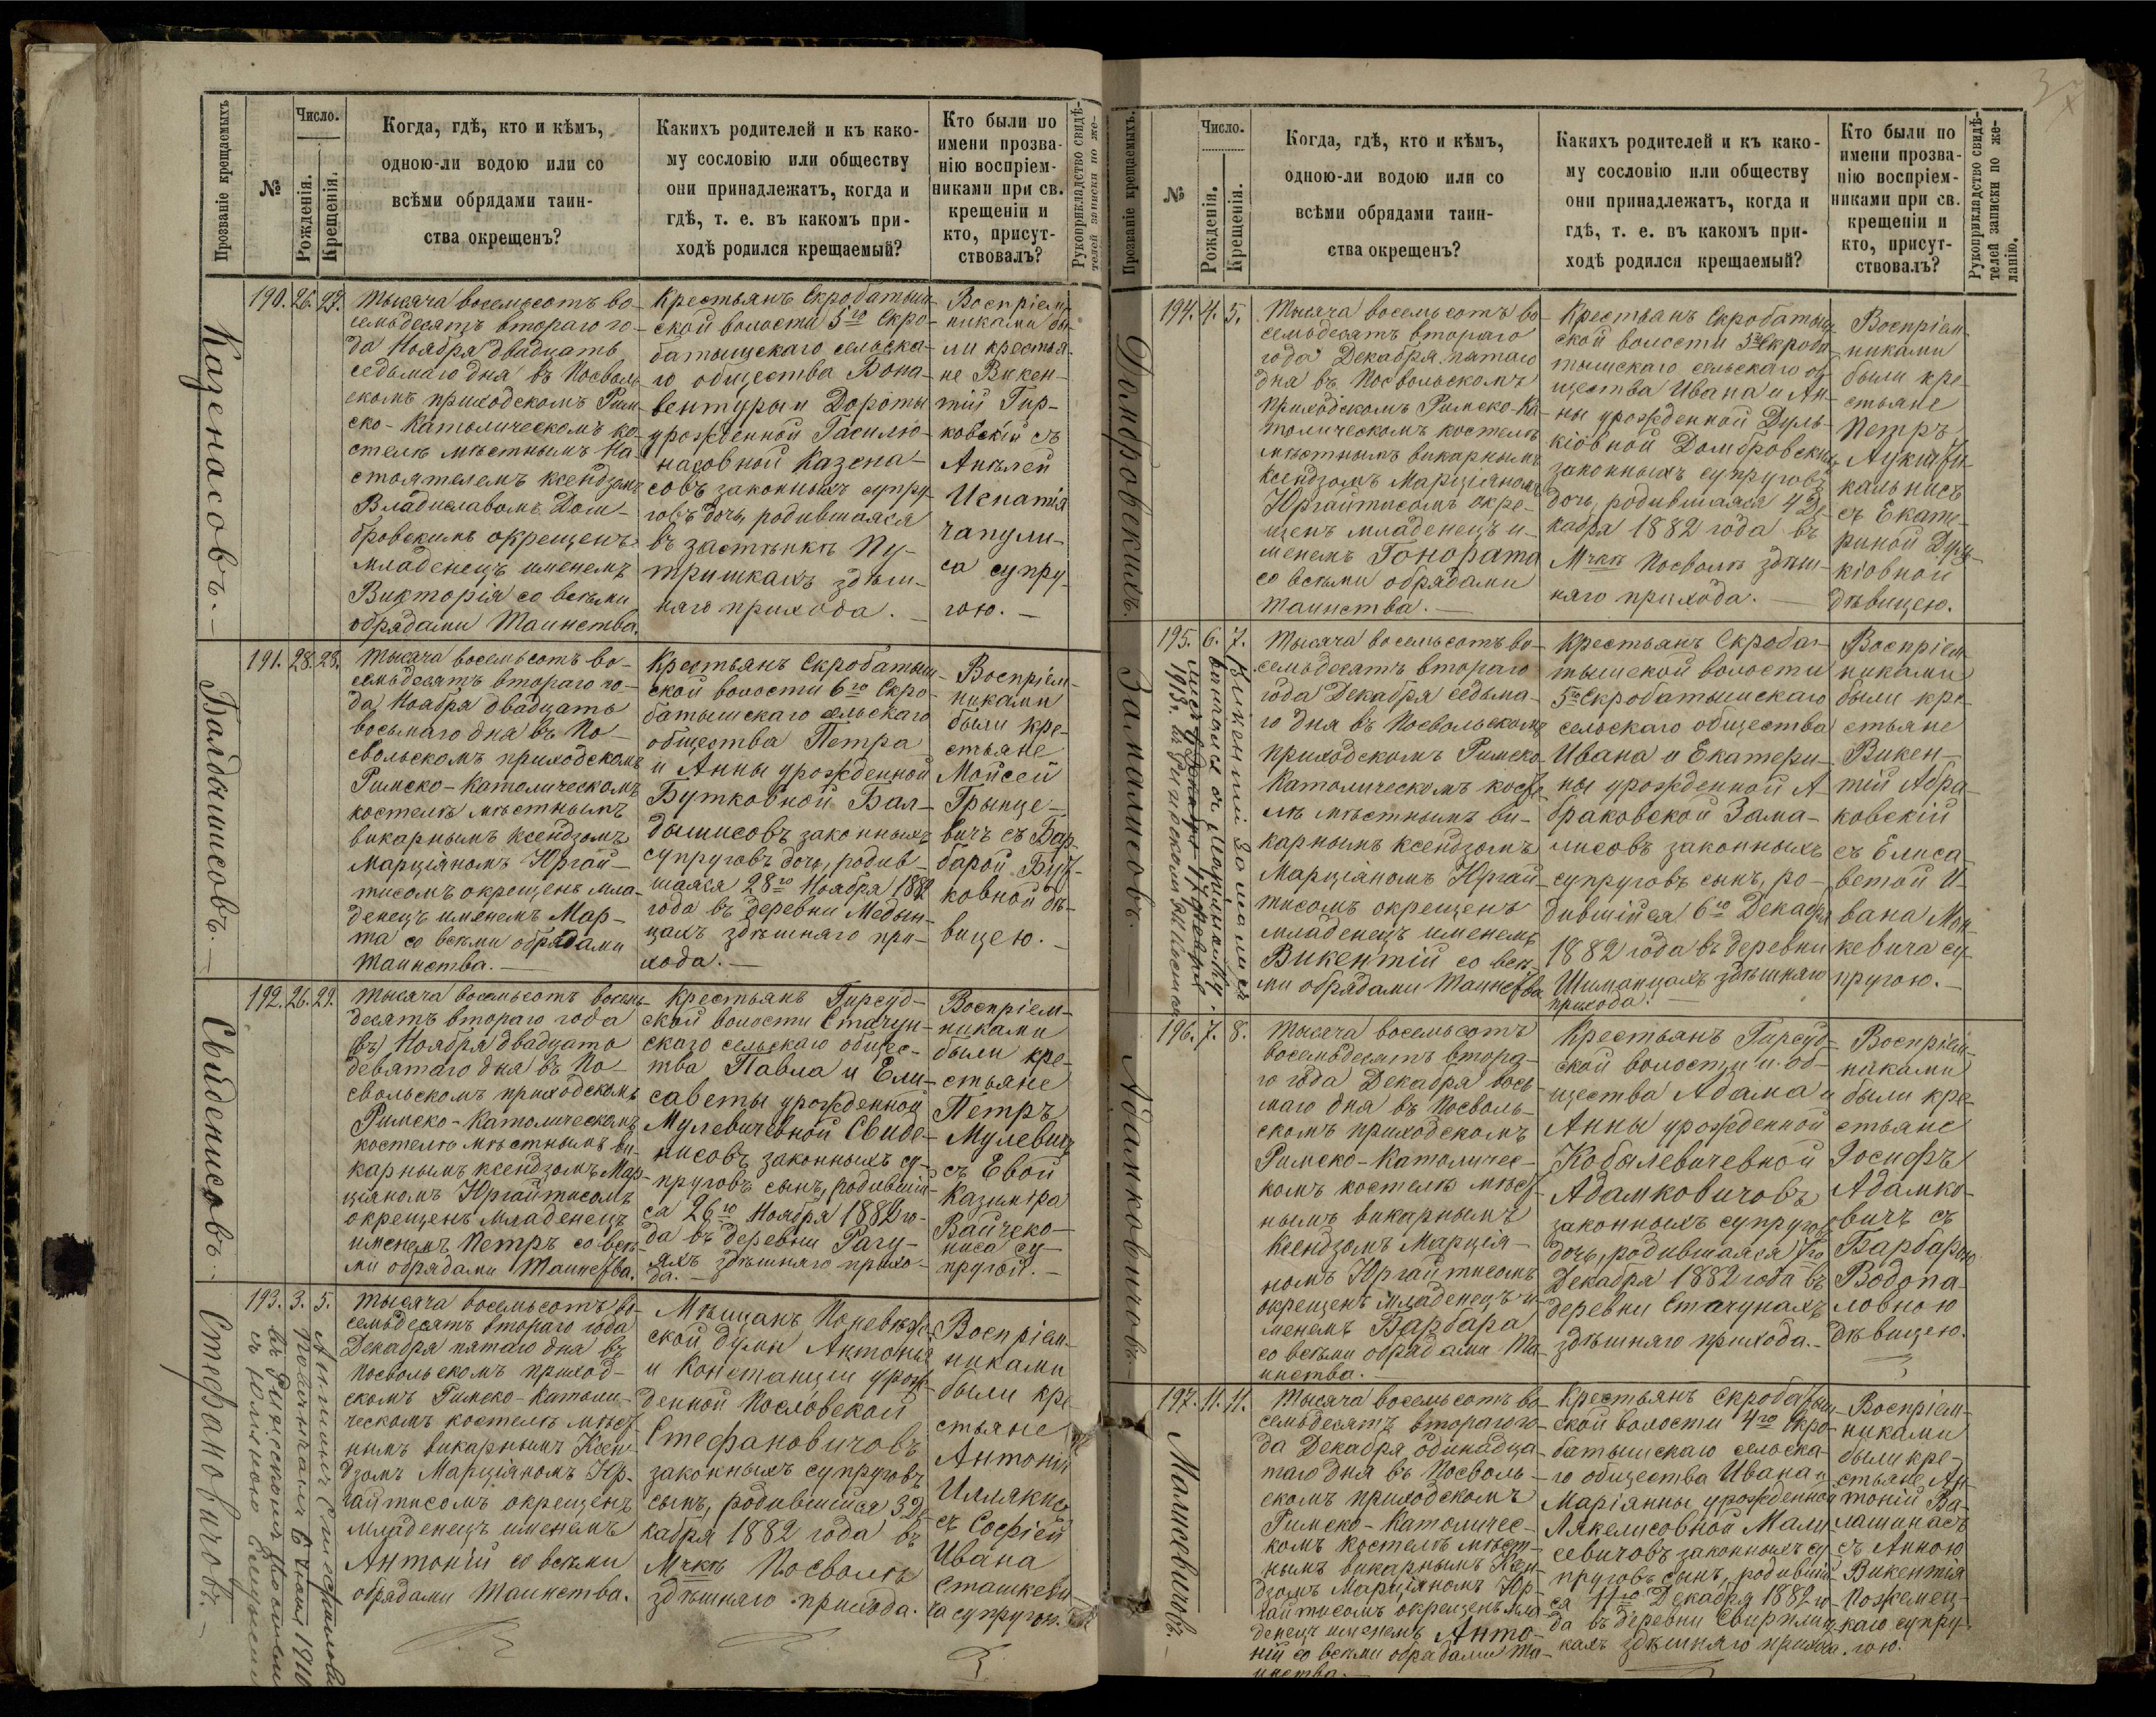 Прозваніе крещаемыхъ
№
Число.
Рожденія.
Крещенія.
Когда, гдѣ, кто и кѣмъ,
одною-ли водою или со
всѣми обрядами таин-
ства окрещенъ?
Какихъ родителей и къ како-
му сословію или обществу
они принадлежатъ, когда и
гдѣ, т. е. въ какомъ при-
ходѣ родился крещаемый?
Кто были по
имени прозва-
нію воспріем-
никами при св.
крещеніи и
кто, присут-
ствовалъ?
Рукоприкладство свидѣ-
телей записки по же-
Казенасовъ.
190. 26. 27.
Тысяча восемьсотъ во-
семьдесятъ втораго го-
да Ноября двадцать
седьмаго дня въ Посволь
скомъ приходскомъ Рим-
ско-Католическомъ ко-
стелѣ мѣстнымъ На-
стоятелемъ ксендзомъ
Владиславомъ Дом-
бровскимъ окрещенъ
младенецъ именемъ
Викторія со всѣми
обрядами Таинства.
Крестьянъ Скробатыш-
ской волости 5го Скро-
батышскаго сельска-
го общества Бона-
вентуры и Дороты
урожденной Гасилю-
насовной Казена-
совъ законныхъ супру-
говъ дочь, родившаяся
въ застѣнкѣ Пу-
тришкахъ здѣш-
няго прихода.
Воспріем-
никами бы-
ли крестья-
не Викен-
тій Гир-
ковскій съ
Анѣлей
Игнатія
Чапули-
са супру-
гою.
Балдышисовъ.
191. 28. 28.
Тысяча восемьсотъ во-
семьдесятъ втораго го-
да Ноября двадцать
восьмаго дня въ По-
свольскомъ приходскомъ
Римско-Католическомъ
костелѣ мѣстнымъ
викарнымъ ксендзомъ
Марціяномъ Юргай-
тисомъ окрещенъ мла-
денецъ именемъ Мар-
та со всѣми обрядами
Таинства.
Крестьянъ Скробатыш-
ской волости 6го Скро-
батышскаго сельскаго
общества Петра
и Анны урожденной
Бутковной Бал-
дышисовъ законныхъ
супруговъ дочь, родив-
шаяся 28го Ноября 1882
года въ деревни Медын-
цахъ здѣшняго при-
хода.
Воспріем-
никами
были кре-
стьяне
Мойсей
Грынце-
вичъ съ Бар-
барой Бут-
ковной дѣ-
вицею.
Свиденисовъ.
192. 26. 29.
Тысяча восемьсотъ восемь-
десятъ втораго года
(въ) Ноября двадцать
девятаго дня въ По-
свольскомъ приходскомъ
Римско-Католическомъ
костелѣ мѣстнымъ ви-
карнымъ ксендзомъ Мар-
ціяномъ Юргайтисомъ
окрещенъ младенецъ
именемъ Петръ со всѣ-
ми обрядами Таинства.
Крестьянъ Гирсуд-
ской волости Стачун-
скаго сельскаго общес-
тва Павла и Ели-
саветы урожденной
Мулевичевной Свиде-
нисовъ законныхъ су-
пруговъ сынъ, родившій-
ся 26го Ноября 1882 го-
да въ деревни Рагу-
яхъ здѣшняго прихо-
да.
Воспріем-
никами
были кре-
стьяне
Петръ
Мулевичъ
съ Евой
Казиміра
Вайчеко-
ниса су-
пругой.
Стефановичовъ.
193. 3. 5.
Тысяча восемьсотъ во-
семьдесятъ втораго года
Декабря пятаго дня въ
Посвольскомъ приход-
скомъ Римско-Католи-
ческомъ костелѣ мѣст-
нымъ викарнымъ Ксен-
дзомъ Марціяномъ Юр-
гайтисомъ окрещенъ
младенецъ именемъ
Антоній со всѣми
обрядами Таинства.
Мѣщанъ Поневѣж-
ской думы Антонія
и Констанціи урож-
денной Пословской
Стефановичовъ
законныхъ супруговъ
сынъ, родившійся 3 Де-
кабря 1882 года въ
Мчкѣ Посволѣ
здѣшняго прихода.
Воспріем-
никами
были кре-
стьяне
Антоній
Иллякисъ
съ Софіей
Ивана
Сташкеви-
ча супругой.
Антонъ Стефанови
1910
въ Рижскомъ костелѣ
съ Юліяною
Прозваніе крещаемыхъ.
№
Число.
Рожденія.
Крещенія.
Когда, гдѣ, кто и кѣмъ,
одною-ли водою или со
всѣми обрядами таин-
ства окрещенъ?
Какихъ родителей и къ како-
му сословію или обществу
они принадлежатъ, когда и
гдѣ, т. е. въ какомъ при-
ходѣ родился крещаемый?
Кто были по
имени прозва-
нію воспріем-
никами при св.
крещеніи и
кто, присут-
ствовалъ?
Рукоприкладство свидѣ-
телей записки по же-
ланію.
Домбровскихъ.
194. 4. 5.
Тысяча восемьсотъ во-
семьдесятъ втораго
года Декабря пятаго
дня въ Посвольскомъ
приходскомъ Римско-Ка-
толическомъ костелѣ
мѣстнымъ викарнымъ
ксендзомъ Марціяномъ
Юргайтисомъ окре-
щенъ младенецъ и-
менемъ Гонората
со всѣми обрядами
Таинства.
Крестьянъ Скробатыш-
ской волости 5го Скроба-
тышскаго сельскаго об-
щества Ивана и Ан-
ны урожденной Дуль-
кіовной Домбровскихъ
законныхъ супруговъ
дочь, родившаяся 4 Де-
кабря 1882 года въ
Мчкѣ Посволѣ здѣш-
няго прихода.
Воспріем-
никами
были кре-
стьяне
Петръ
съ Екате-
риной
кіовной
дѣвицею.
Замалисовъ.
195. 6. 7.
Тысяча восемьсотъ во-
семьдесятъ втораго
года Декабря седьма-
го дня въ Посвольскомъ
приходскомъ Римско-
Католическомъ косте-
лѣ мѣстнымъ ви-
карнымъ ксендзомъ
Марціяномъ Юргай-
тисомъ окрещенъ
младенецъ именемъ
Викентій со всѣ-
ми обрядами Таинства
Крестьянъ Скроба-
тышской волости
5го Скробатышскаго
сельскаго общества
Ивана и Екатери-
ны урожденной А-
браковской Зама-
лисовъ законныхъ
супруговъ сынъ, ро-
дившійся 6го Декабря
1882 года въ деревни
Шиманцахъ здѣшняго
прихода.
Воспріем-
никами
были кре-
стьяне
Викен-
тій Абра-
ковскій
съ Елиса-
ветой И-
вана Мон-
кевича су-
пругою.
Викентій Замалисъ
1913 г. въ Рижскомъ
Адамковичовъ.
196. 7. 8.
Тысяча восемьсотъ
восемьдесятъ втора-
го года Декабря вось-
маго дня въ Посволь-
скомъ приходскомъ
Римско-Католичес-
комъ костелѣ мѣст-
нымъ викарнымъ
Ксендзомъ Марція-
номъ Юргайтисомъ
окрещенъ младенецъ и-
менемъ Барбара
со всѣми обрядами Та-
инства.
Крестьянъ Гирсуд-
ской волости и об-
щества Адама и
Анны урожденной
Кобылевичевной
Адамковичовъ
законныхъ супруговъ
дочь, родившаяся 7го
Декабря 1882 года въ
деревни Стачунахъ
здѣшняго прихода.
Воспріем-
никами
были кре-
стьяне
Іосифъ
Адамко-
вичъ съ
Барбарою
Водопа-
ловною
дѣвицею.
Малисевичовъ.
197. 11. 11.
Тысяча восемьсотъ во-
семьдесятъ втораго го-
да Декабря одинадца-
таго дня въ Посволь-
скомъ приходскомъ
Римско-Католичес-
комъ костелѣ мѣст-
нымъ викарнымъ Ксен-
дзомъ Марціяномъ Юр-
гайтисомъ окрещенъ мла-
денецъ именемъ Анто-
ній со всѣми обрядами Та-
инства.
Крестьянъ Скробатыш-
ской волости 4го Скро-
батышскаго сельска-
го общества Ивана и
Маріянны урожденной
Лякелисовной Мали-
севичовъ законныхъ су-
пруговъ сынъ, родившій-
ся 11го Декабря 1882 го-
да въ деревни Свирпли-
кахъ здѣшняго прихода.
Воспріем-
никами
были кре-
стьяне Ан-
тоній Ва-
лашинасъ
съ Анною
Викентія
Пожемец-
каго супру-
гою.